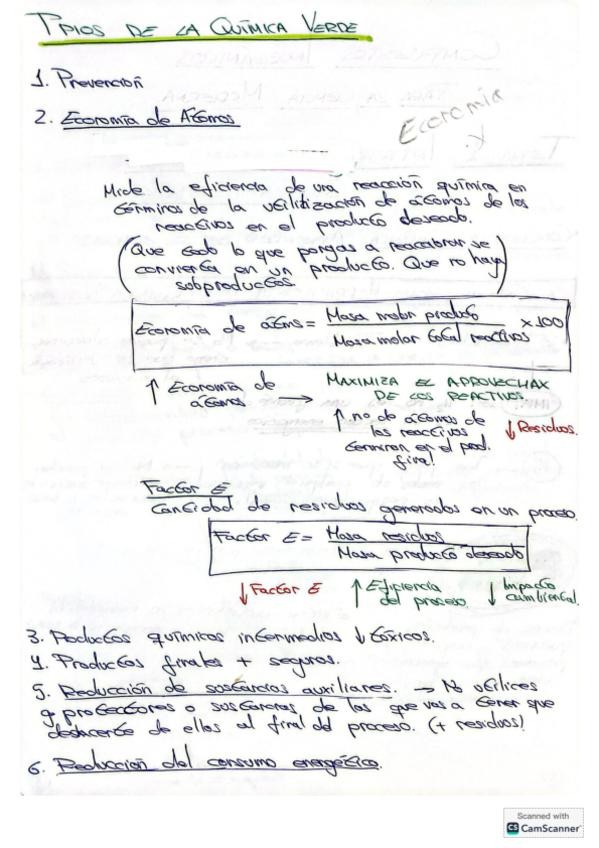 Ppios DE LA QUÍMICA VERDE
1. Prevención
2. Economía de Átomos
Economía
Mide la eficiencia de una reacción química en
términos de la utilización de átomos de los
reactivos en el producto deseado.
(Que todo lo que pongas a reaccionar se
convierta en un producto. Que no haya
subproductos)
Economía de átoms = Masa molar producto / Masa molar total reactivos x 100
↑ Economía de átomos → MAXIMIZA EL APROVECHAX
DE LOS REACTIVOS
↑ no de átomos de
los reactivos
terminan en el prod.
final
↓ Residuos.
Factor E
Cantidad de residuos generados en un proceso.
Factor E = Masa residuos / Masa producto deseado
↓ Factor E ↑ Eficiencia del proceso ↓ Impacto ambiental.
3. Productos químicos intermedios ↓ tóxicos.
4. Productos finales + seguros.
5. Reducción de sustancias auxiliares. → No utilices
g. protectores o sustancias de las que vas a tener que
deshacerte de ellos al final del proceso. (+ residuos!)
6. Reducción del consumo energético.
Scanned with
CS CamScanner